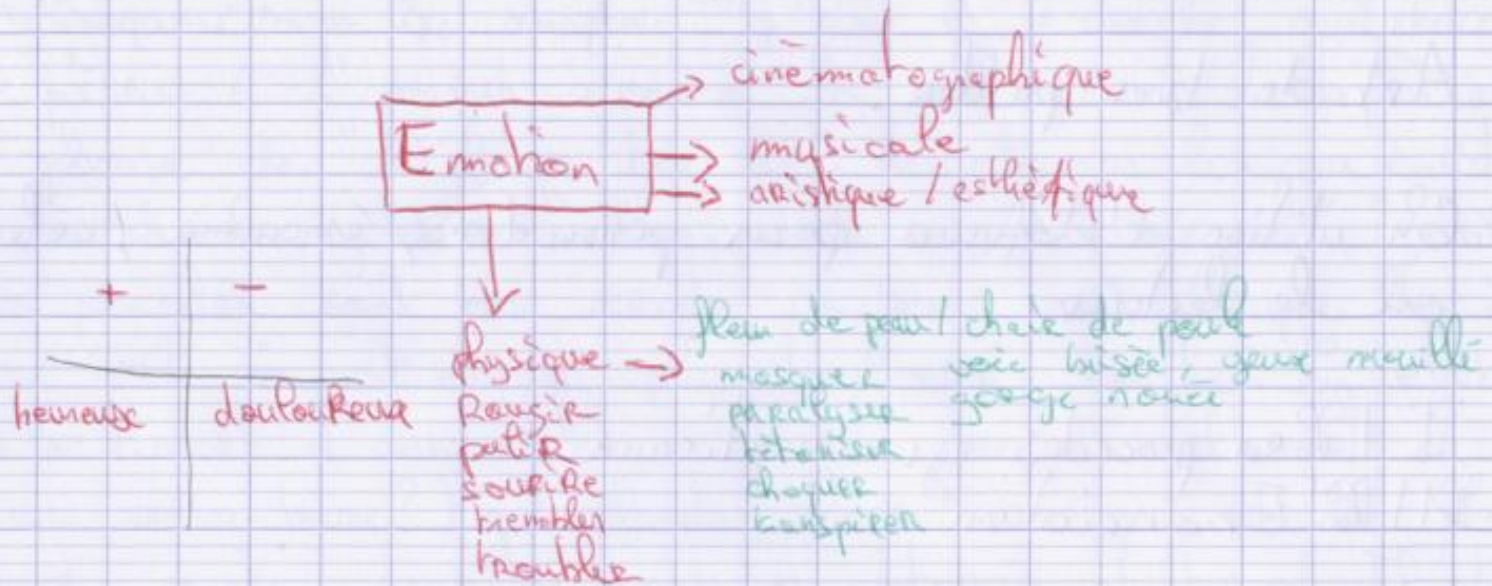 cinématographique
Emotion
musicale
aristique / esthétique
+ -
heureuse douloureux
physique
Rougir
palir
sourire
trembler
troubler
fleur de peau / chair de poule
masquer voie brisée, yeux mouillé
paralyser gorge nouée
tétaniser
choquer
transpirer